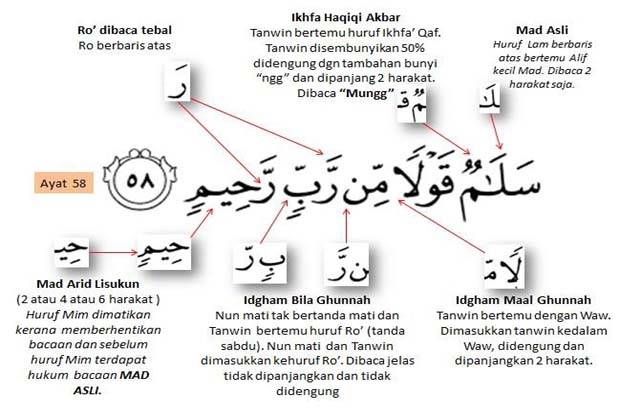 Ro’ dibaca tebal
Ro berbaris atas
رَ
Ikhfa Haqiqi Akbar
Tanwin bertemu huruf Ikhfa’ Qaf.
Tanwin disembunyikan 50%
didengung dgn tambahan bunyi
“ngg” dan dipanjang 2 harakat.
Dibaca “Mungg”
مٌ قَ
Mad Asli
Huruf Lam berbaris
atas bertemu Alif
kecil Mad. Dibaca 2
harakat saja.
لَـٰ
Ayat 58
سَلَـٰمٌ قَوْلًا مِّن رَّبٍّ رَّحِيمٍ ٥٨
حِيـ
حِيمٍ
Mad Arid Lisukun
(2 atau 4 atau 6 harakat )
Huruf Mim dimatikan
kerana memberhentikan
bacaan dan sebelum
huruf Mim terdapat
hukum bacaan MAD
ASLI.
بٍ رَّ
ن رَّ
Idgham Bila Ghunnah
Nun mati tak bertanda mati dan
Tanwin bertemu huruf Ro’ (tanda
sabdu). Nun mati dan Tanwin
dimasukkan kehuruf Ro’. Dibaca jelas
tidak dipanjangkan dan tidak
didengung
لًا مّـ
Idgham Maal Ghunnah
Tanwin bertemu dengan Waw.
Dimasukkan tanwin kedalam
Waw, didengung dan
dipanjangkan 2 harakat.